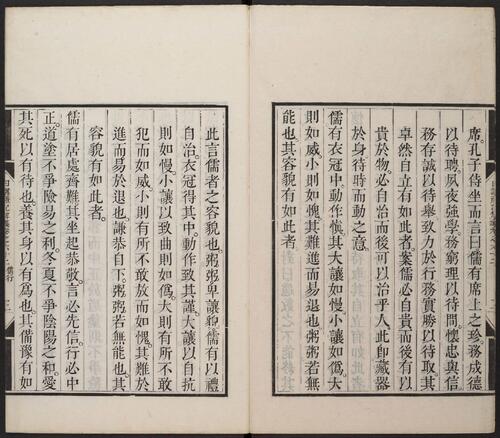 席。孔子侍坐而言曰儒有席上之珍。務成德
以待聘。夙夜強學務窮理以待問。懷忠與信
務存誠以待舉致力於行務實勝以待取。其
卓然自立有如此者。案儒必自貴而後有以
貴於物。必自治而後可以治乎人此即藏器
於身待時而動之意。
儒有衣冠中。動作慎其大讓如慢小讓如僞大
則如威小則如愧其難進而易退也粥粥若無
能也其容貌有如此者
此言儒者之容貌也粥粥卑讓貌儒有以禮
自治。衣冠得其中。動作致其謹。大讓以自抗
則如慢。小讓以致曲則如僞。大則有所不敢
犯而如威小則有所不敢放而如愧。其難於
進而易於退也謙恭自下粥粥若無能也其
容貌有如此者。
儒有居處齊難其坐起恭敬。言必先信。行必中
正。道塗不爭險易之利冬夏不爭陰陽之和。愛
其死以有待也。養其身以有爲也。其備豫有如
儒行